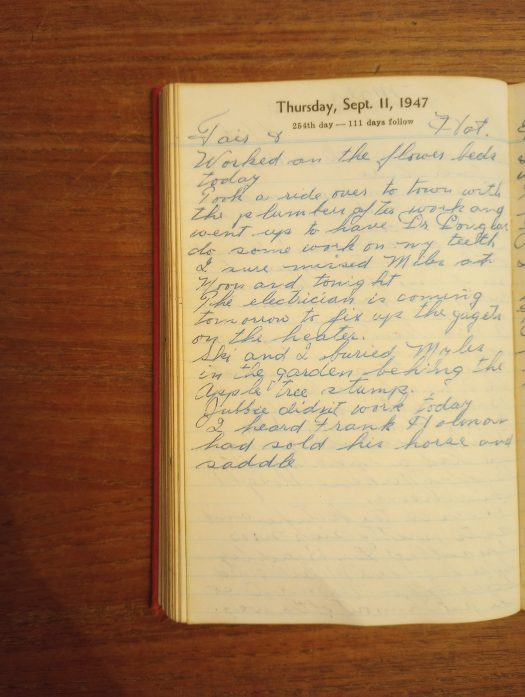 Thursday, Sept. 11, 1947
254th day — 111 days follow
Fair & Hot.
Worked on the flower beds
today
Took a ride over to town with
the plumber after work and
went up to have Dr Douglas
do some work on my teeth
I sure missed Myles at
Noon and tonight
The electrician is coming
tomorrow to fix up the gagets
on the heater.
Ski and I buried Myles
in the garden behing the
apple tree stump.
didnt work today
I heard Frank Holman
had sold his horse and
saddle